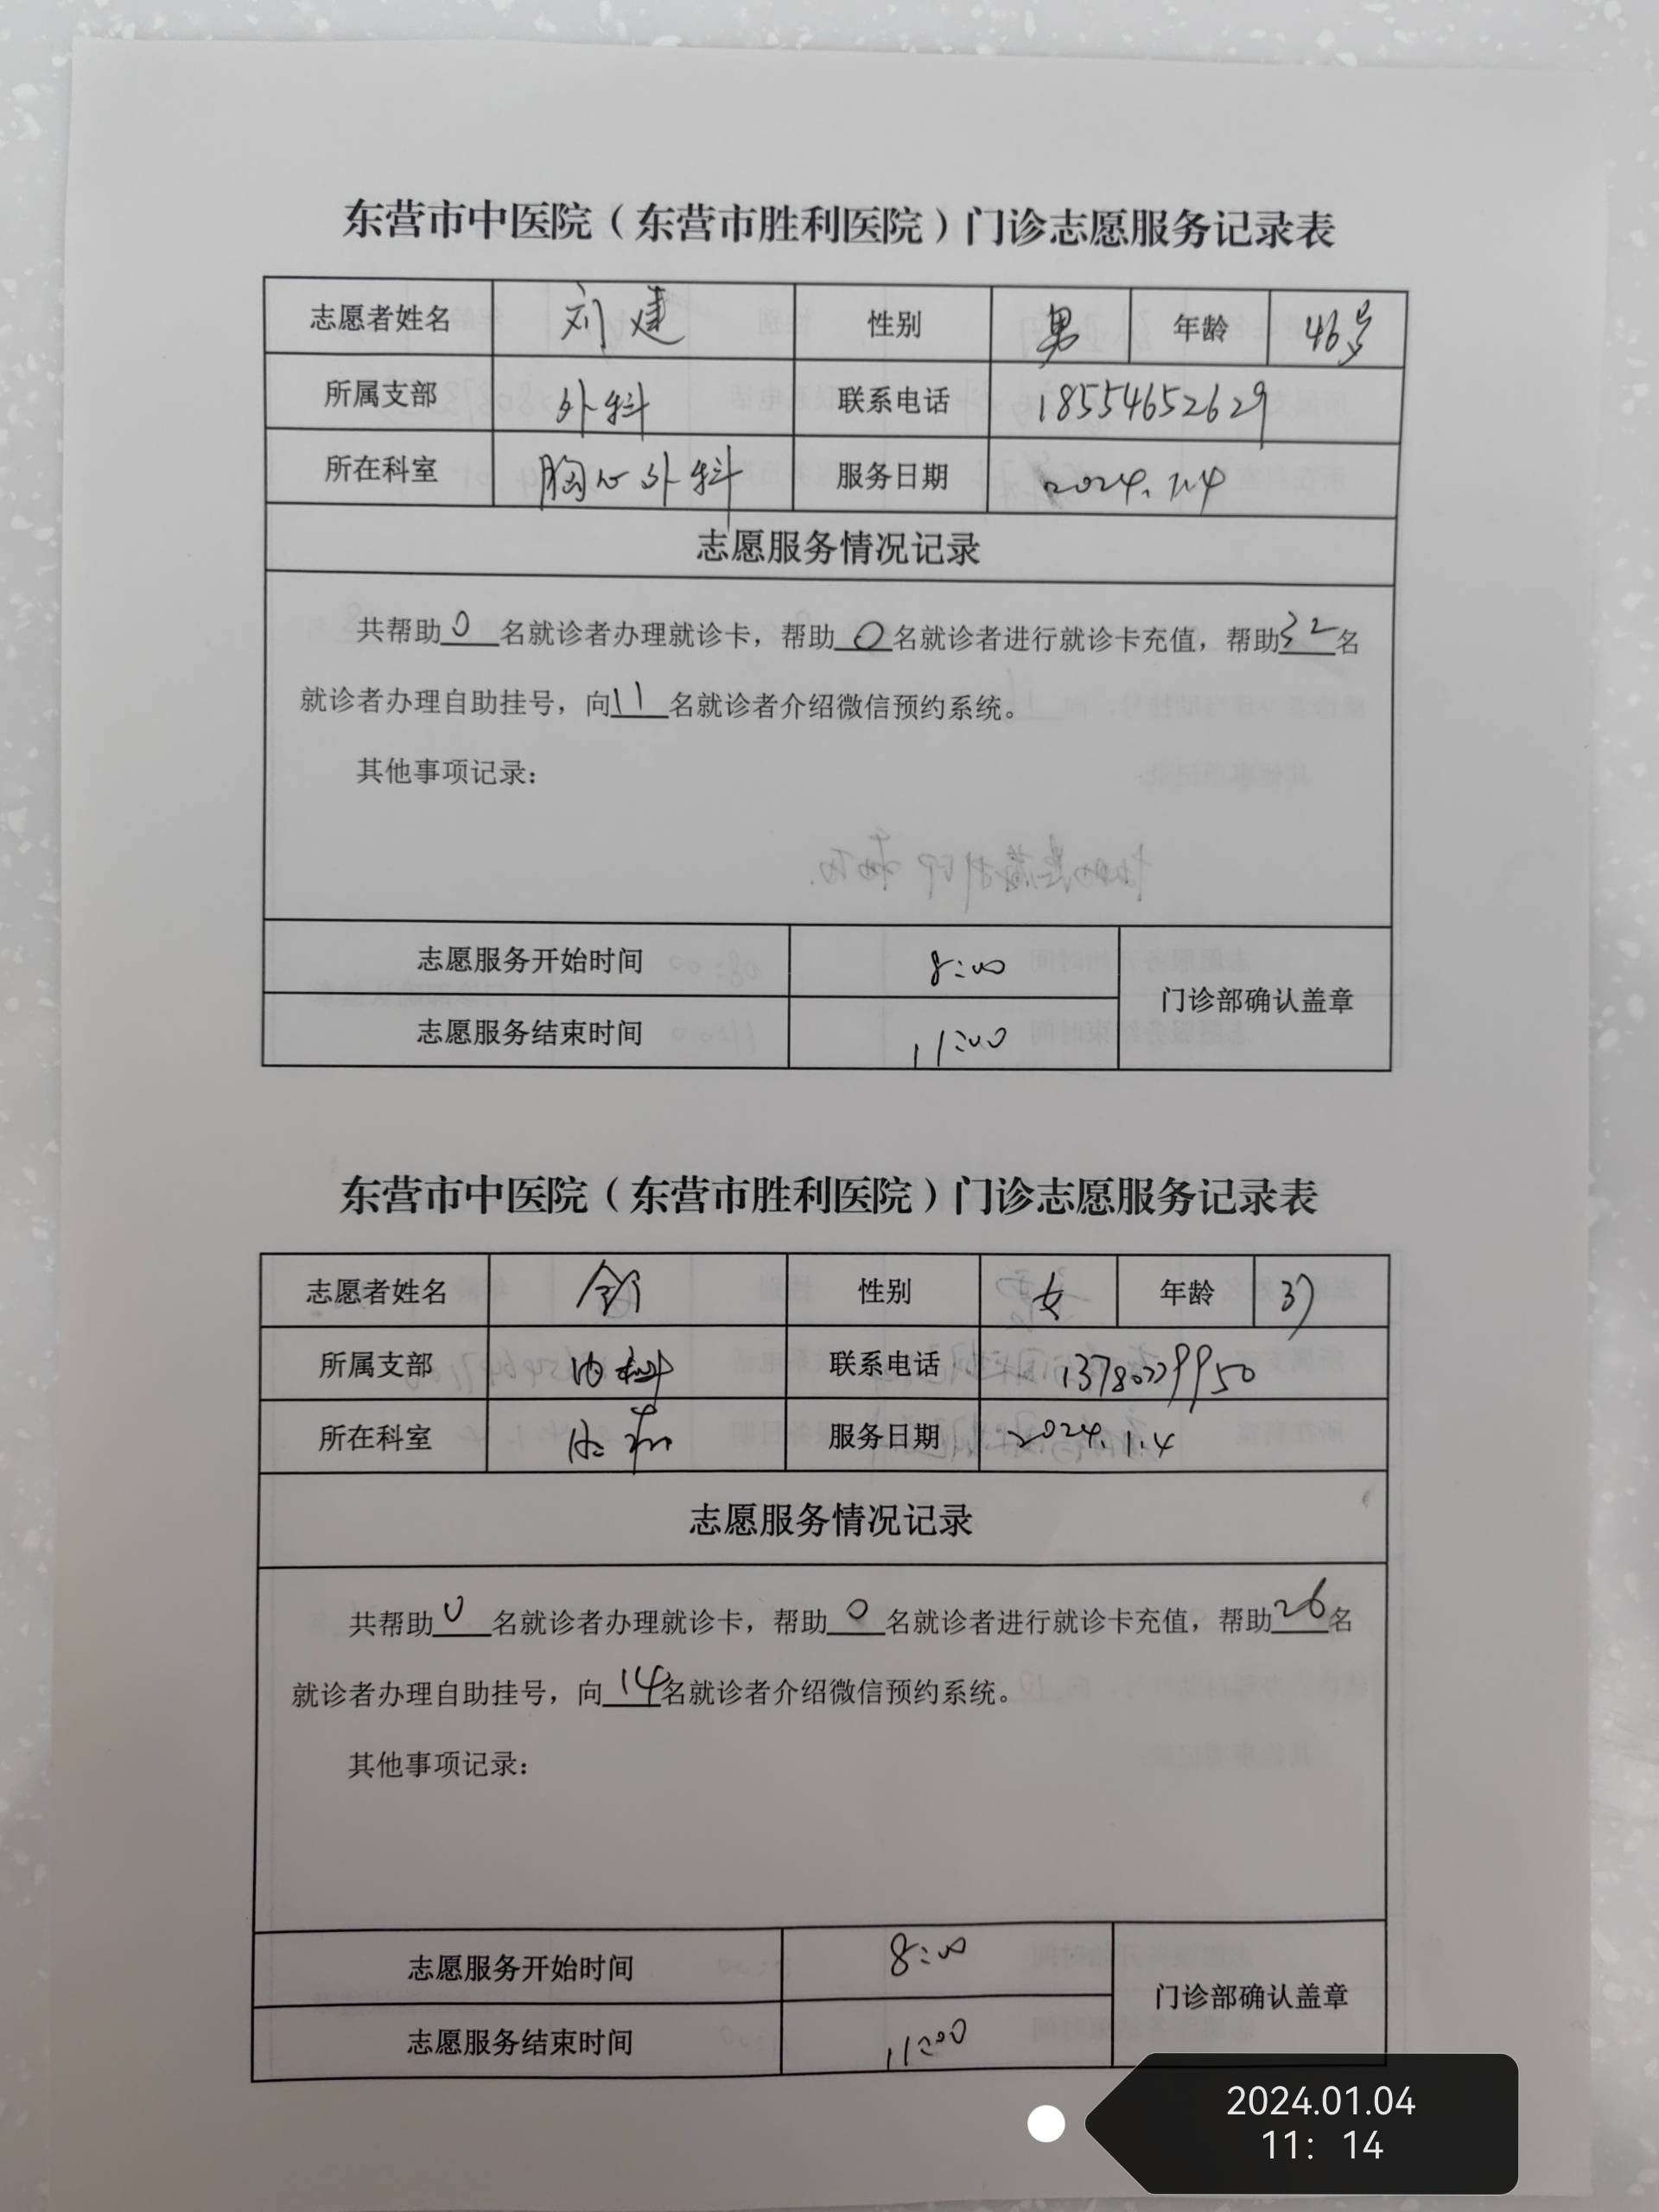 东营市中医院（东营市胜利医院）门诊志愿服务记录表
志愿者姓名 刘建 性别 男 年龄 46岁
所属支部 外科 联系电话 18554652629
所在科室 胸心外科 服务日期 2024.1.4
志愿服务情况记录
共帮助0名就诊者办理就诊卡，帮助0名就诊者进行就诊卡充值，帮助32名
就诊者办理自助挂号，向11名就诊者介绍微信预约系统。
其他事项记录：
志愿服务开始时间 8:00
门诊部确认盖章
志愿服务结束时间 11:00
东营市中医院（东营市胜利医院）门诊志愿服务记录表
志愿者姓名 性别 女 年龄 37
所属支部 内科 联系电话
所在科室 服务日期 2024.1.4
志愿服务情况记录
共帮助0名就诊者办理就诊卡，帮助0名就诊者进行就诊卡充值，帮助26名
就诊者办理自助挂号，向14名就诊者介绍微信预约系统。
其他事项记录：
志愿服务开始时间 8:00
门诊部确认盖章
志愿服务结束时间 11:00
2024.01.04
11：14